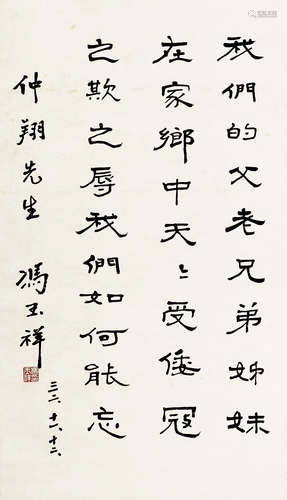 我們的父老兄弟姊妹
在家鄉中天〻受倭寇
之欺之辱我們如何能忘
仲翔先生 馮玉祥
三六、十一、十二、